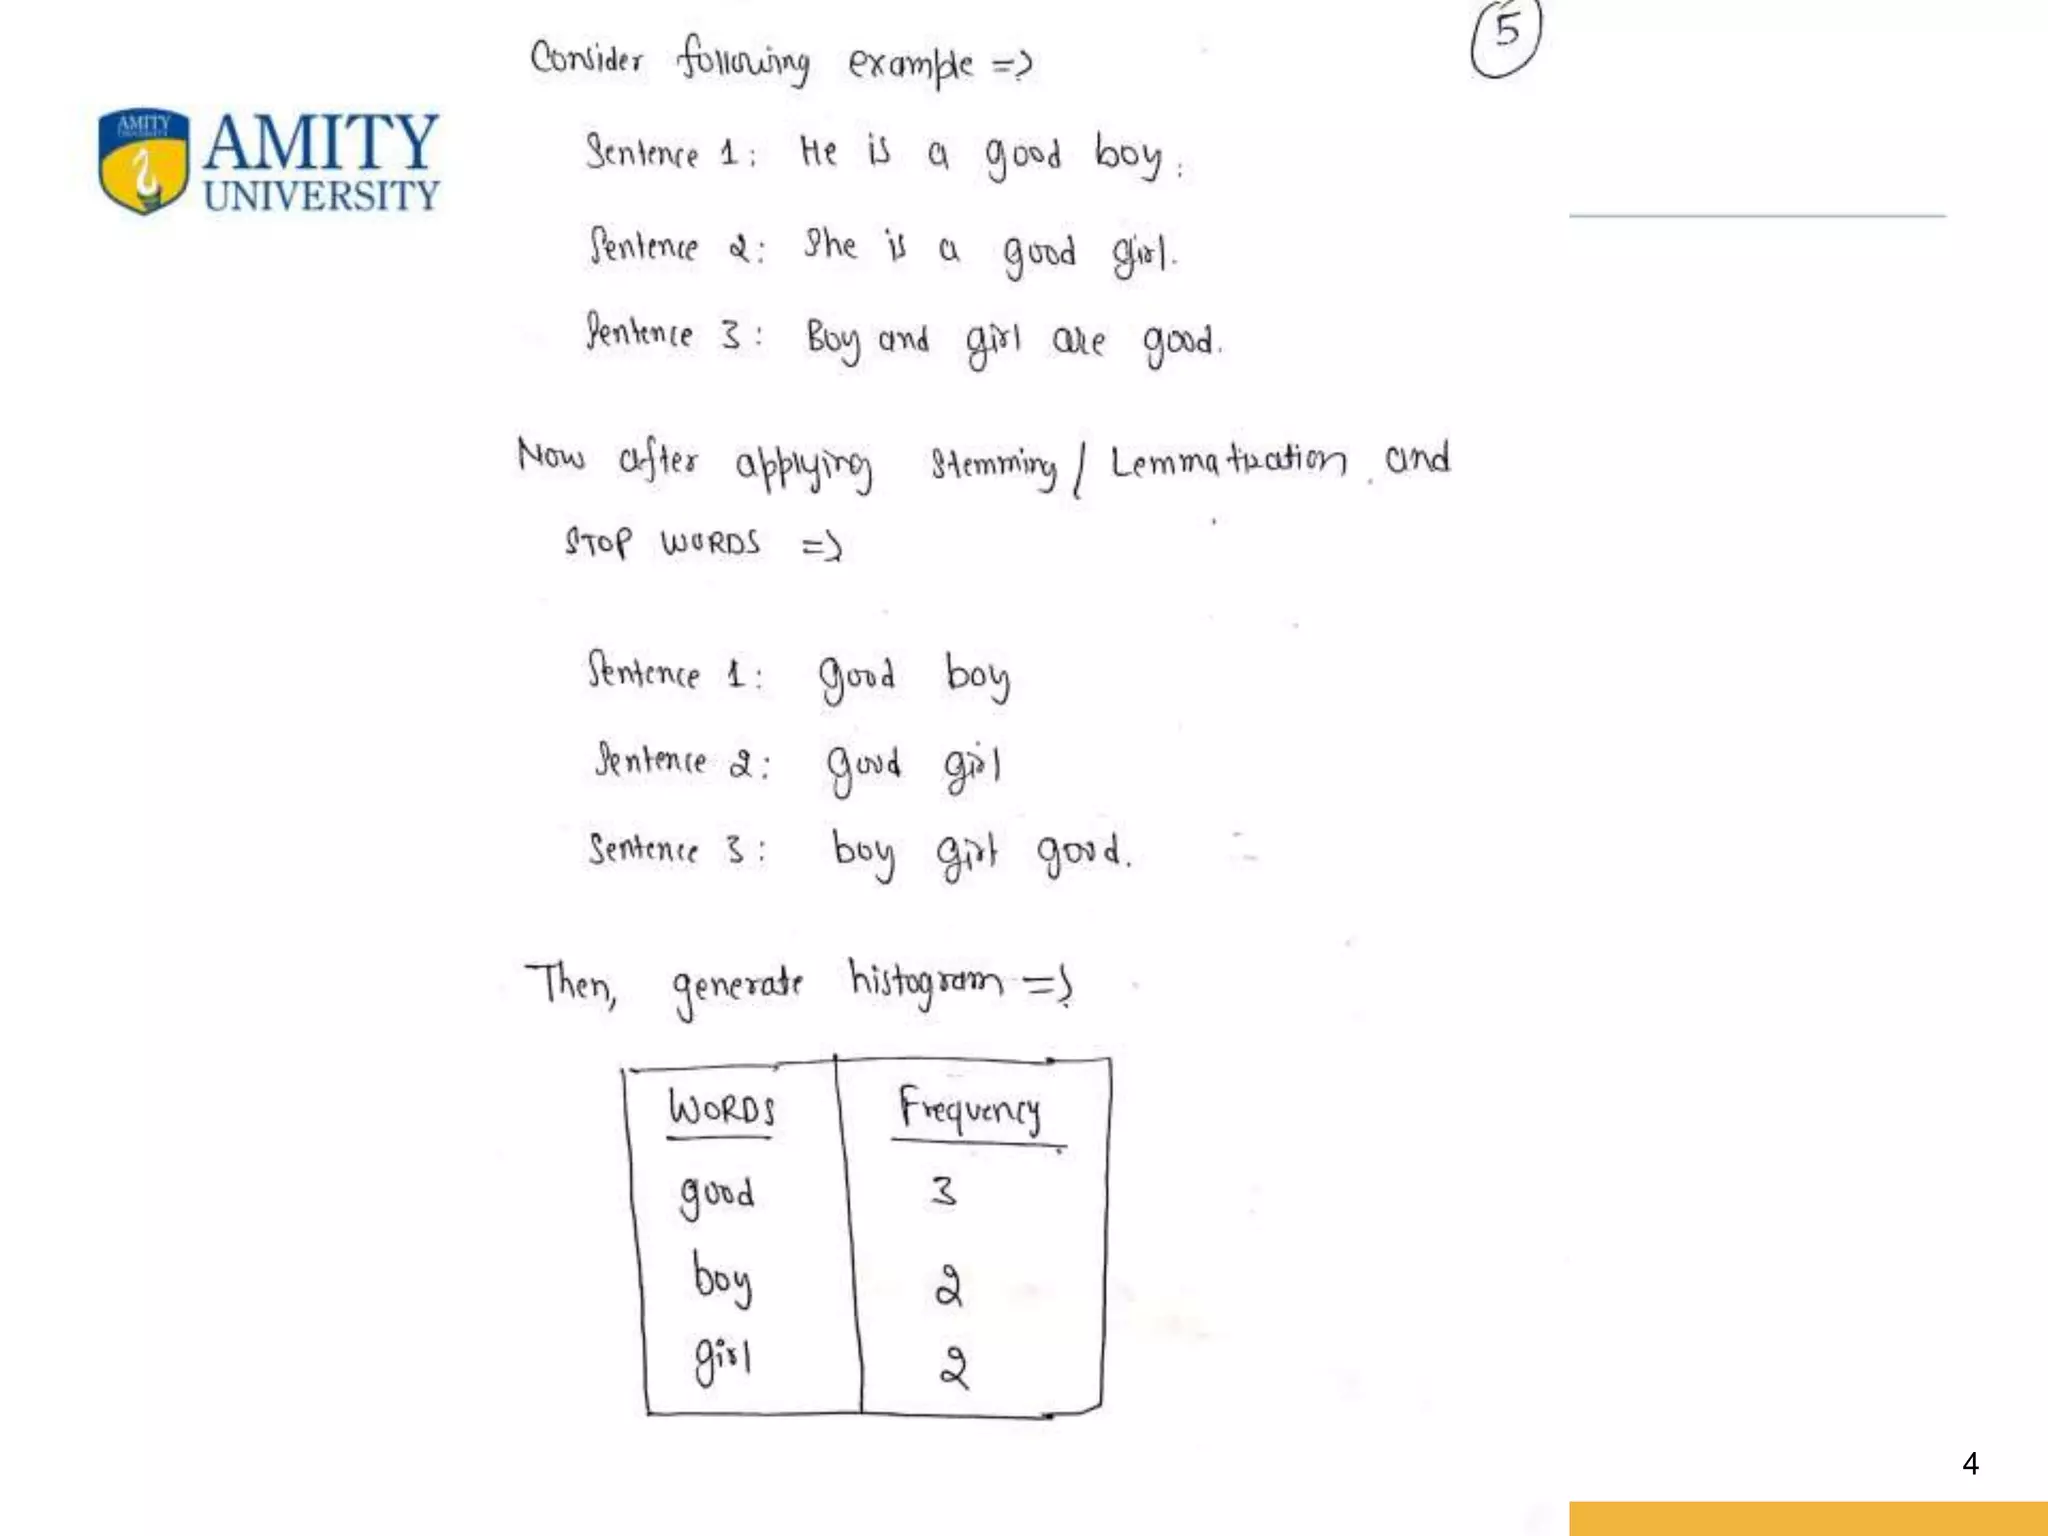 5
Consider following example =>
AMITY
AMITY
UNIVERSITY
Sentence 1: He is a good boy.
Sentence 2: She is a good girl.
Sentence 3: Boy and girl are good.
Now after applying Stemming / Lemmatization and
STOP WORDS =>
Sentence 1: good boy
Sentence 2: good girl
Sentence 3: boy girl good.
Then, generate histogram =>
WORDS Frequency
good 3
boy 2
girl 2
4